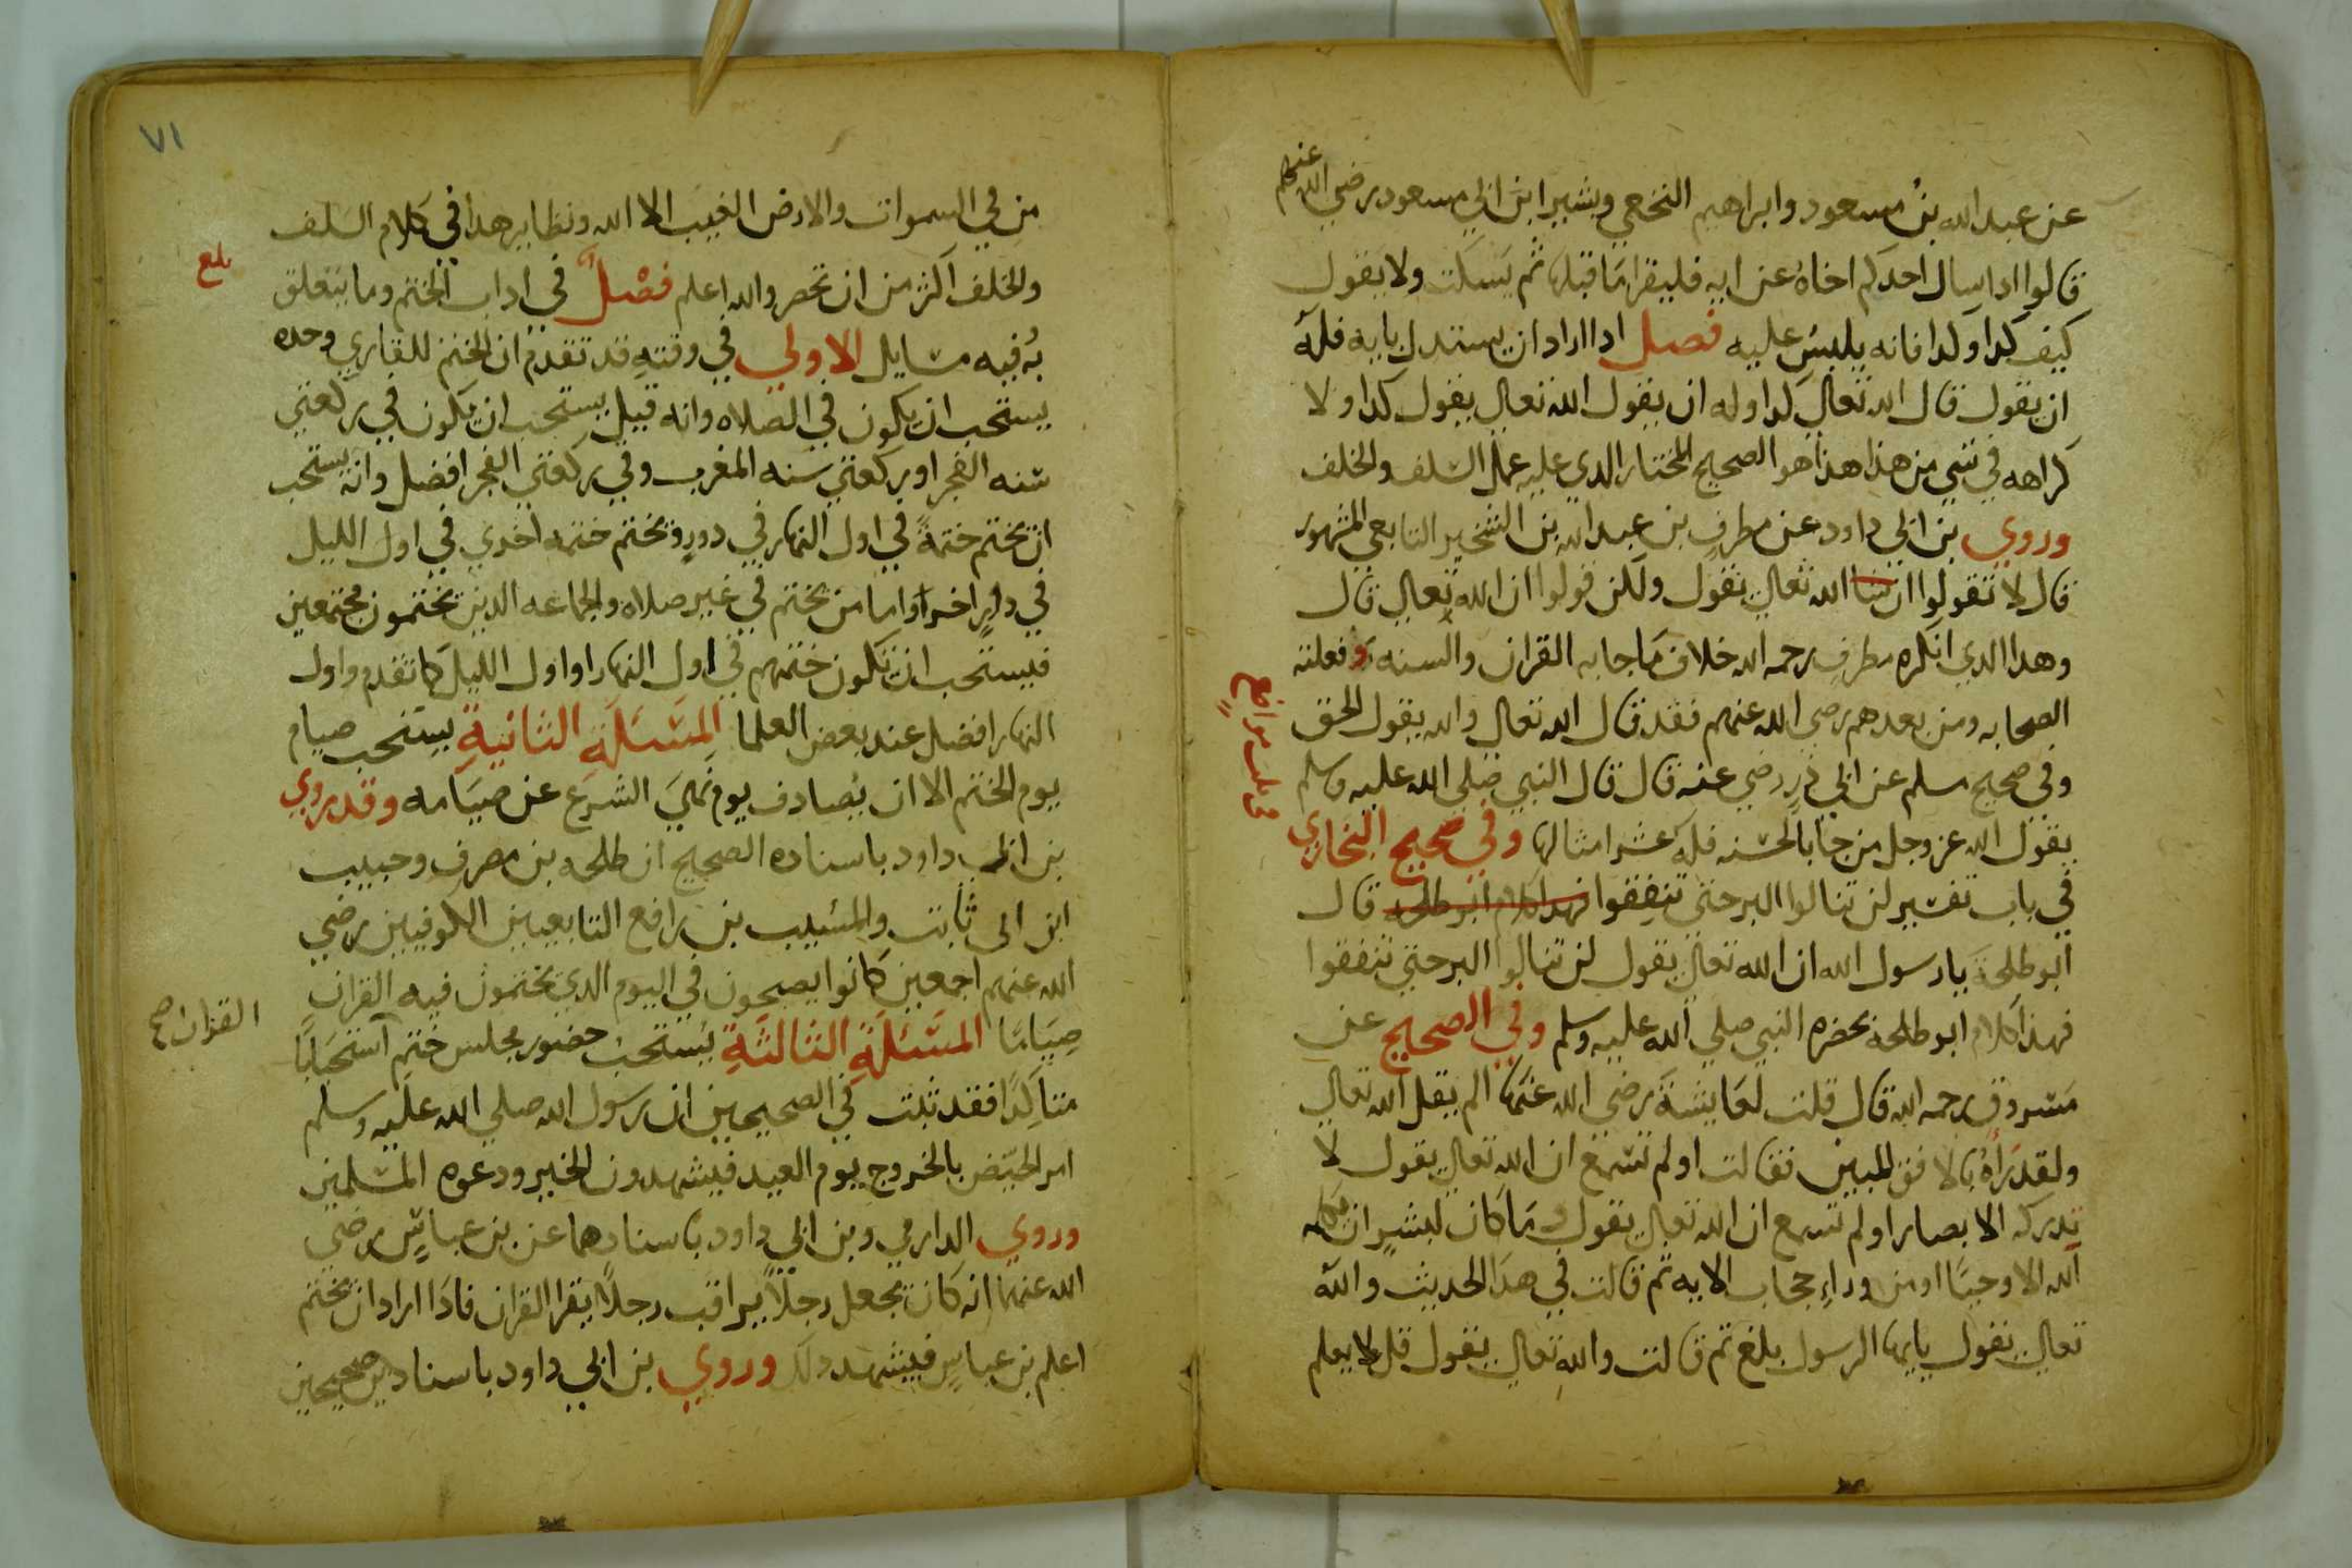 عن عبد الله بن مسعود وابراهيم النخعي وبشير ابن ابي مسعود رضي الله عنهم
قالوا اذا سال احدكم اخاه عن ايه فليقرا ما قبلها ثم يسكت ولا يقول
كيف كدا وكدا فانه يلبس عليه فصل ادا اراد ان يستدل بايه فله
ان يقول قال الله تعالي كدا وله ان يقول الله تعالي يقول كدا ولا
كراهه في شي من هذا هذا هو الصحيح المختار الدي عليه عمل السلف والخلف
وروي بن ابي داود عن مطرف بن عبد الله بن الشخير التابعي المشهور
قال لا تقولوا ان الله تعالي يقول ولكن قولوا ان الله تعالي قال
وهدا الدي انكره مطرف رحمه الله خلاف ما جا به القران والسنه وفعلته
الصحابه ومن بعدهم رضي الله عنهم فقد قال الله تعالي والله يقول الحق
وفي صحيح مسلم عن ابي ذر رضي عنه قال قال النبي صلي الله عليه وسلم
يقول الله عز وجل من جا بالحسنه فله عشر امثالها وفي صحيح البخاري
في باب تفسير لن تنالوا البر حتي تنفقوا فهدا كلام ابو طلحه قال
ابو طلحة يا رسول الله ان الله تعالي يقول لن تنالوا البر حتي تنفقوا
فهذا كلام ابو طلحه بحضره النبي صلي الله عليه وسلم وفي الصحيح عن
مسروق رحمه الله قال قلت لعايشة رضي الله عنها الم يقل الله تعالي
ولقد رأه بالافق المبين فقالت اولم تسمع ان الله تعالي يقول لا
تدركه الابصار اولم تسمع ان الله تعالي يقول وما كان لبشر ان يكلمه
الله الا وحيا او من وراء حجاب الايه ثم قالت في هدا الحديث والله
تعالي يقول يايها الرسول بلغ ثم قالت والله تعالي يقول قل لا يعلم
٧١
من في السموات والارض الغيب الا الله ونظاير هدا في كلام السلف
والخلف اكثر من ان تحصر والله اعلم فصل في اداب الختم وما يتعلق
بلغ
به فيه مسايل الاولي في وقته قد تقدم ان الختم للقاري وحده
يستحب ان يكون في الصلاه وانه قيل يستحب ان يكون في ركعتي
سنه الفجر او ركعتي سنه المغرب وفي ركعتي الفجر افضل وانه يستحب
ان يختم ختمة في اول النهار في دور ويختم ختمه اخري في اول الليل
في دور اخر واما من يختم في غير صلاه والجماعه الدين يختمون مجتمعين
فيستحب ان تكون ختمتهم في اول النهار او اول الليل كما تقدم واول
النهار افضل عند بعض العلما المسئلة الثانية يستحب صيام
يوم الختم الا ان يصادف يوم نهي الشرع عن صيامه وقد روي
بن ابي داود باسناده الصحيح ان طلحه بن مصرف وحبيب
ابن ابي ثابت والمسيب بن رافع التابعيين الكوفيين رضي
الله عنهم اجمعين كانوا يصبحون في اليوم الدي يختمون فيه القران
القران صح
صياما المسئلة الثالثة يستحب حضور مجلس ختم استحبابا
متأكدا فقد ثبت في الصحيحين ان رسول الله صلي الله عليه وسلم
امر الحيض بالخروج يوم العيد فيشهدون الخير ودعوه المسلمين
وروي الدارمي وبن ابي داود باسنادهما عن بن عباس رضي
الله عنهما انه كان يجعل رجلا يراقب رجلا يقرا القران فادا اراد ان يختم
اعلم بن عباس فيشهد دلك وروي بن ابي داود باسنادين صحيحين